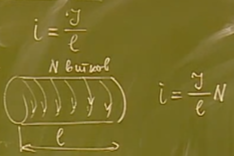 i = J/l
N витков
l
i = J/l N